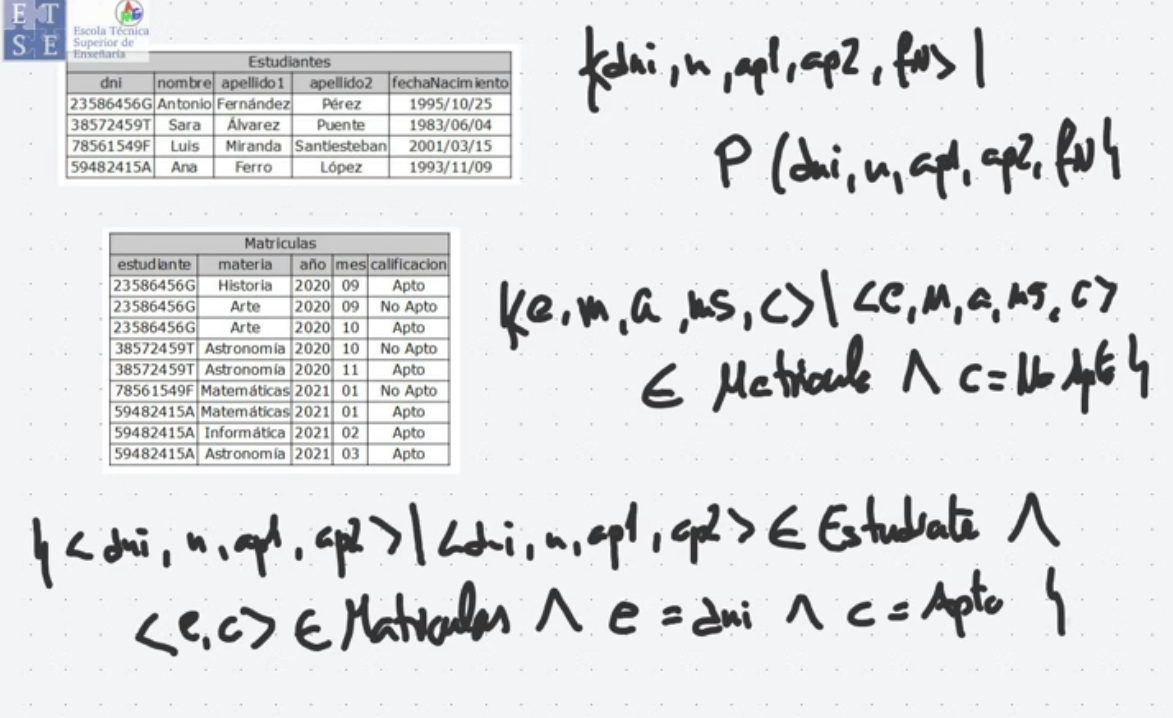 E T
S E
Escola Técnica
Superior de
Enxeñaría
Estudiantes
dni nombre apellido1 apellido2 fechaNacimiento
23586456G Antonio Fernández Pérez 1995/10/25
38572459T Sara Álvarez Puente 1983/06/04
78561549F Luis Miranda Santiesteban 2001/03/15
59482415A Ana Ferro López 1993/11/09
{<dni, n, ap1, ap2, fN> |
P (dni, n, ap1, ap2, fN)}
Matriculas
estudiante materia año mes calificacion
23586456G Historia 2020 09 Apto
23586456G Arte 2020 09 No Apto
23586456G Arte 2020 10 Apto
38572459T Astronomía 2020 10 No Apto
38572459T Astronomía 2020 11 Apto
78561549F Matemáticas 2021 01 No Apto
59482415A Matemáticas 2021 01 Apto
59482415A Informática 2021 02 Apto
59482415A Astronomía 2021 03 Apto
{<e, m, a, ms, c> | <e, m, a, ms, c>
∈ Matricula ∧ c = No Apto}
{<dni, n, ap1, ap2> | <dni, n, ap1, ap2> ∈ Estudiate ∧
<e, c> ∈ Matriculas ∧ e = dni ∧ c = Apto}